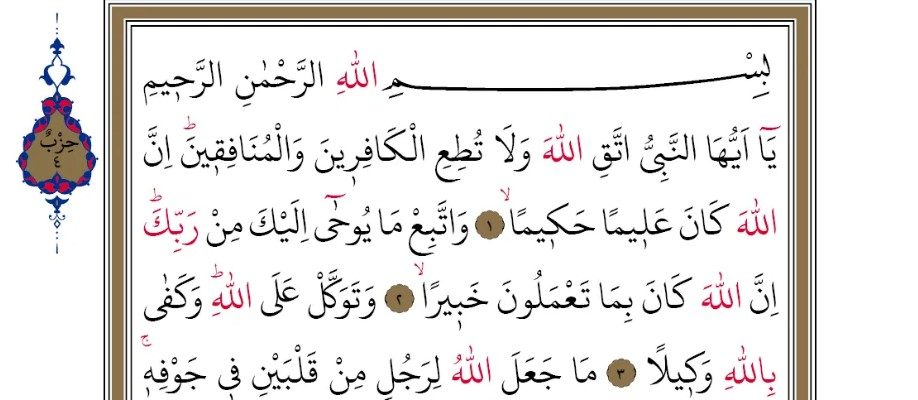 بِسْمِ اللّٰهِ الرَّحْمٰنِ الرَّحٖيمِ
يَٓا اَيُّهَا النَّبِىُّ اتَّقِ اللّٰهَ وَلَا تُطِعِ الْكَافِرٖينَ وَالْمُنَافِقٖينَؕ اِنَّ
اللّٰهَ كَانَ عَلٖيمًا حَكٖيمًاۙ ١ وَاتَّبِعْ مَا يُوحٰٓى اِلَيْكَ مِنْ رَبِّكَؕ
اِنَّ اللّٰهَ كَانَ بِمَا تَعْمَلُونَ خَبٖيرًاۙ ٢ وَتَوَكَّلْ عَلَى اللّٰهِؕ وَكَفٰى
بِاللّٰهِ وَكٖيلًا ٣ مَا جَعَلَ اللّٰهُ لِرَجُلٍ مِنْ قَلْبَيْنِ فٖى جَوْفِهٖۚ
حِزْبٌ
٤